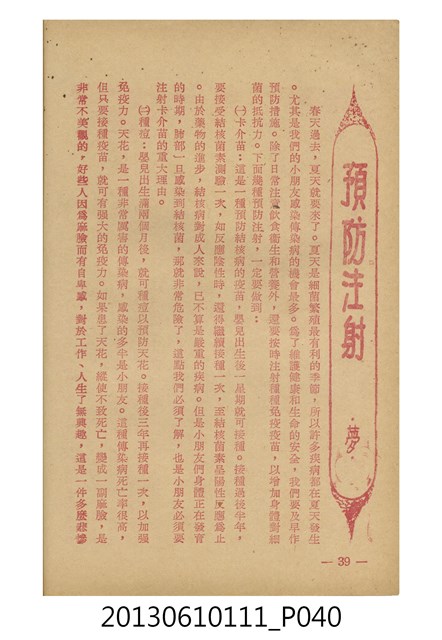 預防注射
·夢·
春天過去，夏天就要來了。夏天是細菌繁殖最有利的季節，所以許多疾病都在夏天發生
。尤其是我們的小朋友感染傳染病的機會最多。為了維護健康和生命的安全，我們要及早作
預防措施。除了日常注意飲食衛生和營養外，還要按時注射種種免疫疫苗，以增加身體對細
菌的抵抗力。下面幾種預防注射，一定要做到：
㈠卡介苗：這是一種預防結核病的疫苗，嬰兒出生後一星期就可接種。接種過後半年，
要接受結核菌素測驗一次，如反應陰性時，還得繼續接種一次，至結核菌素呈陽性反應為止
。由於藥物的進步，結核病對成人來說，已不算是嚴重的疾病。但是小朋友們身體正在發育
的時期，肺部一旦感染到結核菌，那就非常危險了，這點我們必須了解，也是小朋友必須要
注射卡介苗的重大理由。
㈡種痘：嬰兒出生滿兩個月後，就可種痘以預防天花。接種後三年再接種一次，以加強
免疫力。天花，是一種非常厲害的傳染病，感染的多半是小朋友。這種傳染病死亡率很高，
但只要接種疫苗，就可有強大的免疫力。如果患了天花，縱使不致死亡，變成一副麻臉，是
非常不美觀的，好些人因為麻臉而有自卑感，對於工作、人生了無興趣，這是一件多麼悲慘
— 39 —
20130610111_P040